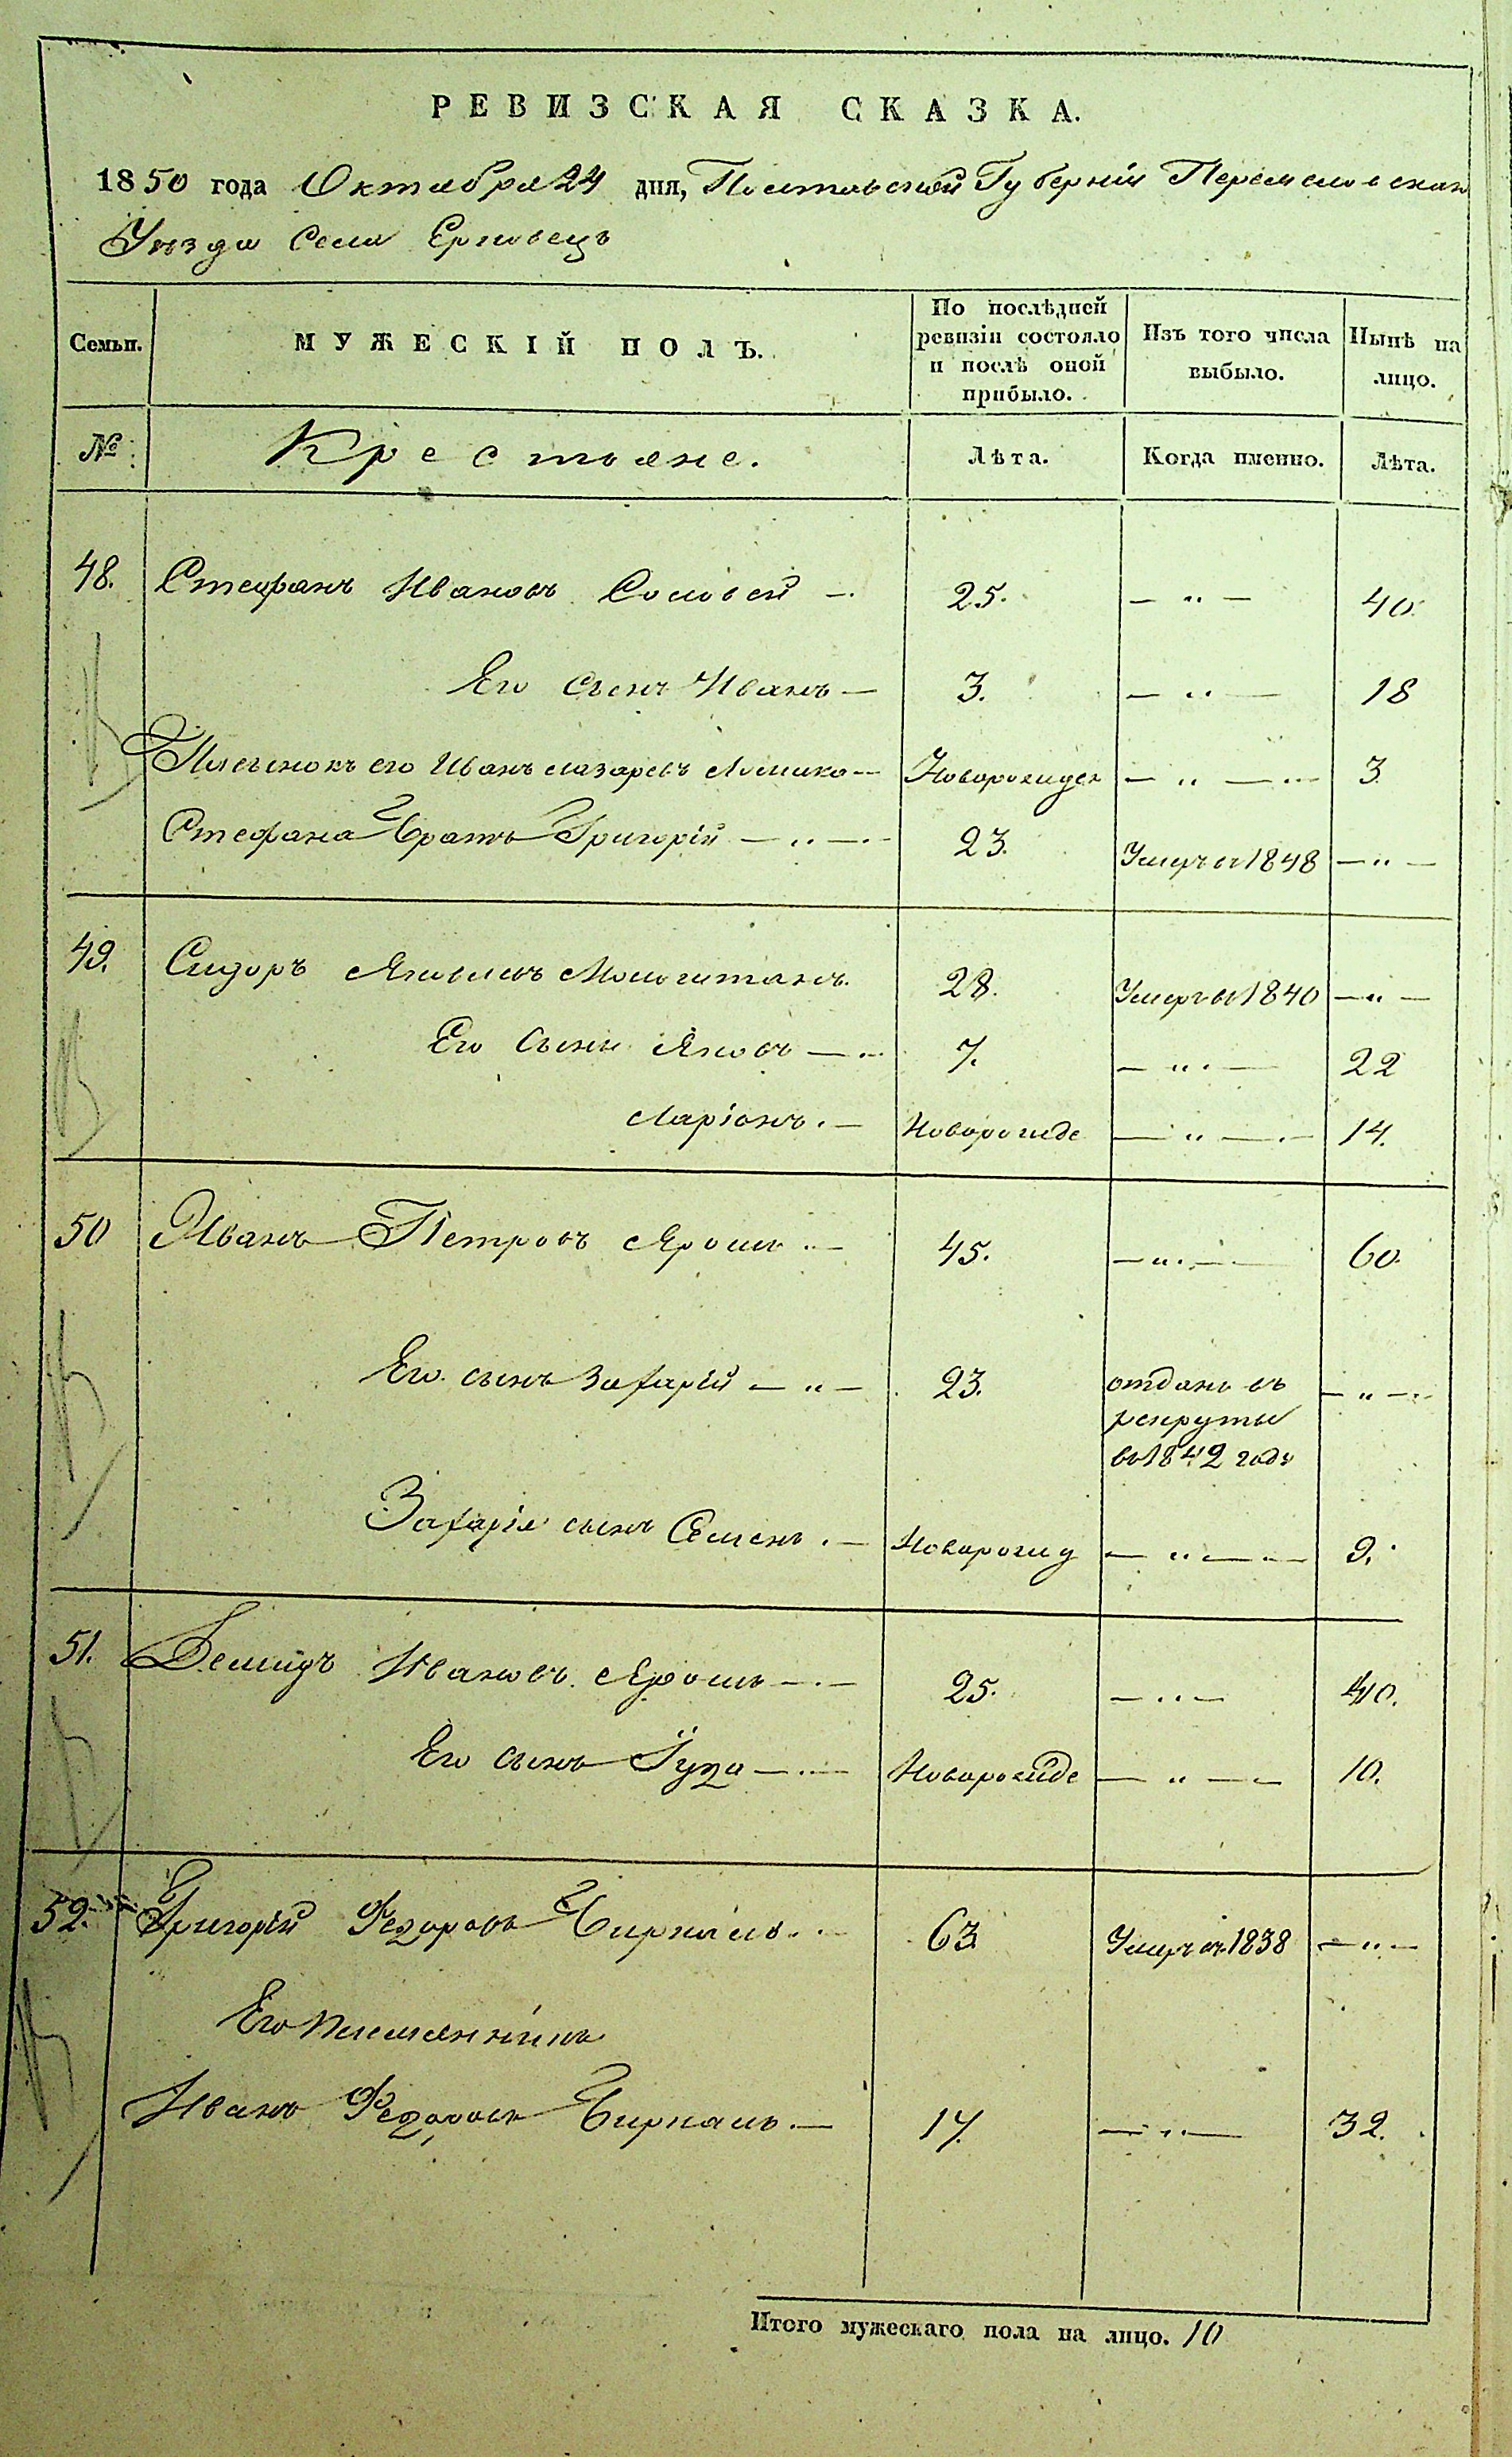 РЕВИЗСКАЯ СКАЗКА.
1850 года Октября 24 дня, Полтавской Губерніи Переяславскаго
Уѣзда Села Ерковецъ
Семьи. МУЖЕСКІЙ ПОЛЪ. По послѣдней ревизіи состояло и послѣ оной прибыло. Изъ того числа выбыло. Нынѣ на лицо.
№ Крестьяне. Лѣта. Когда именно. Лѣта.
48. Стефанъ Ивановъ Соловей — 25. — „ — 40.
Его сынъ Иванъ — 3. — „ — 18
Пасынокъ его Иванъ Лазаревъ — Новорожден — „ — 3
Стефана братъ Григорій — „ — 23. Умеръ въ 1848 — „ —
49. Сидоръ Яковлевъ 28. Умеръ въ 1840 — „ —
Его сыны Яковъ — 7. — „ — 22
Ларіонъ. — Новорожде — „ — 14.
50 Иванъ Петровъ Ярошъ — 45. — „ — 60.
Его сынъ Захарій — „ — 23. отданъ въ — „ —
рекруты
въ 1842 годѣ
Захарія сынъ Семенъ. — Новорожд — „ — 9.
51. Демидъ Ивановъ Ярошъ — 25. — „ — 40.
Его сынъ Іуда — Новорожде — „ — 10.
52. Григорій Федоровъ 63 Умеръ въ 1838 — „ —
Его племянникъ
Иванъ Федоровъ — 17. — „ — 32.
Итого мужескаго пола на лицо. 10